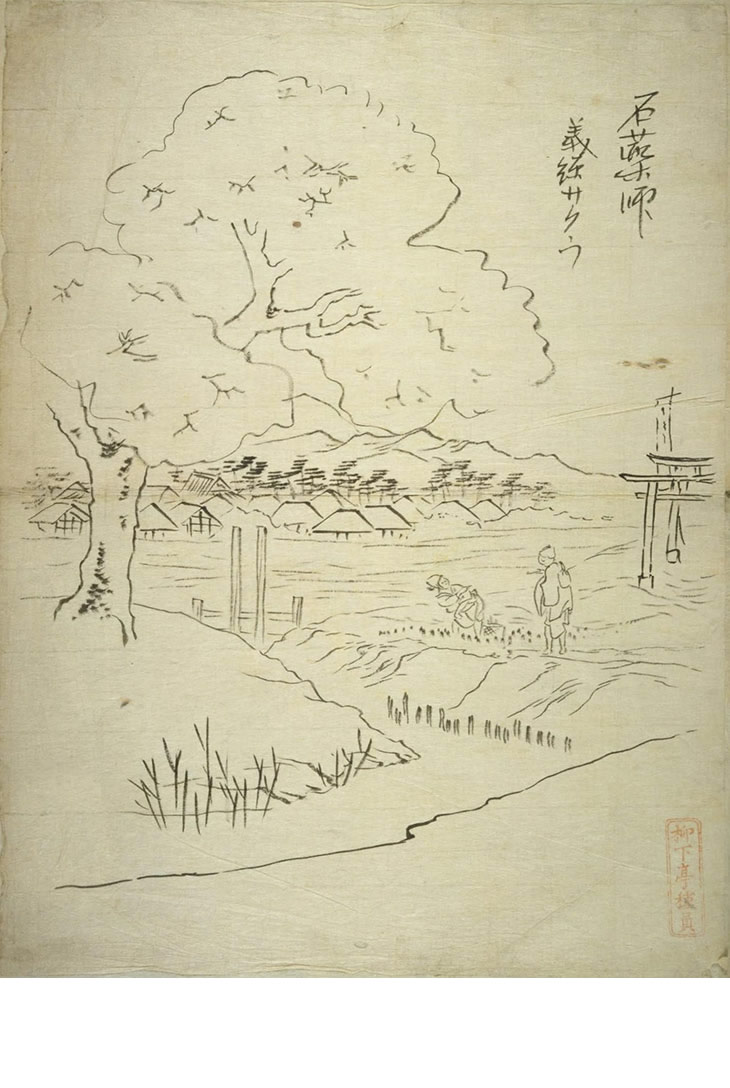 石薬師
義経サクラ
柳下亭種員